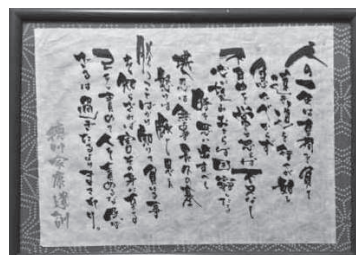 人の一生は重荷を負て
遠き道を行くが如し
急ぐべからず
不自由を常と思へば不足なし
心に望おこらば困窮したる
時を思ひ出すべし
堪忍は無事長久の基
怒りは敵と思へ
勝事ばかり知りて負くる事
を知らざれば害其の身に至る
己を責めて人を責めるな及ば
ざるは過ぎたるよりまされり。
徳川家康遺訓